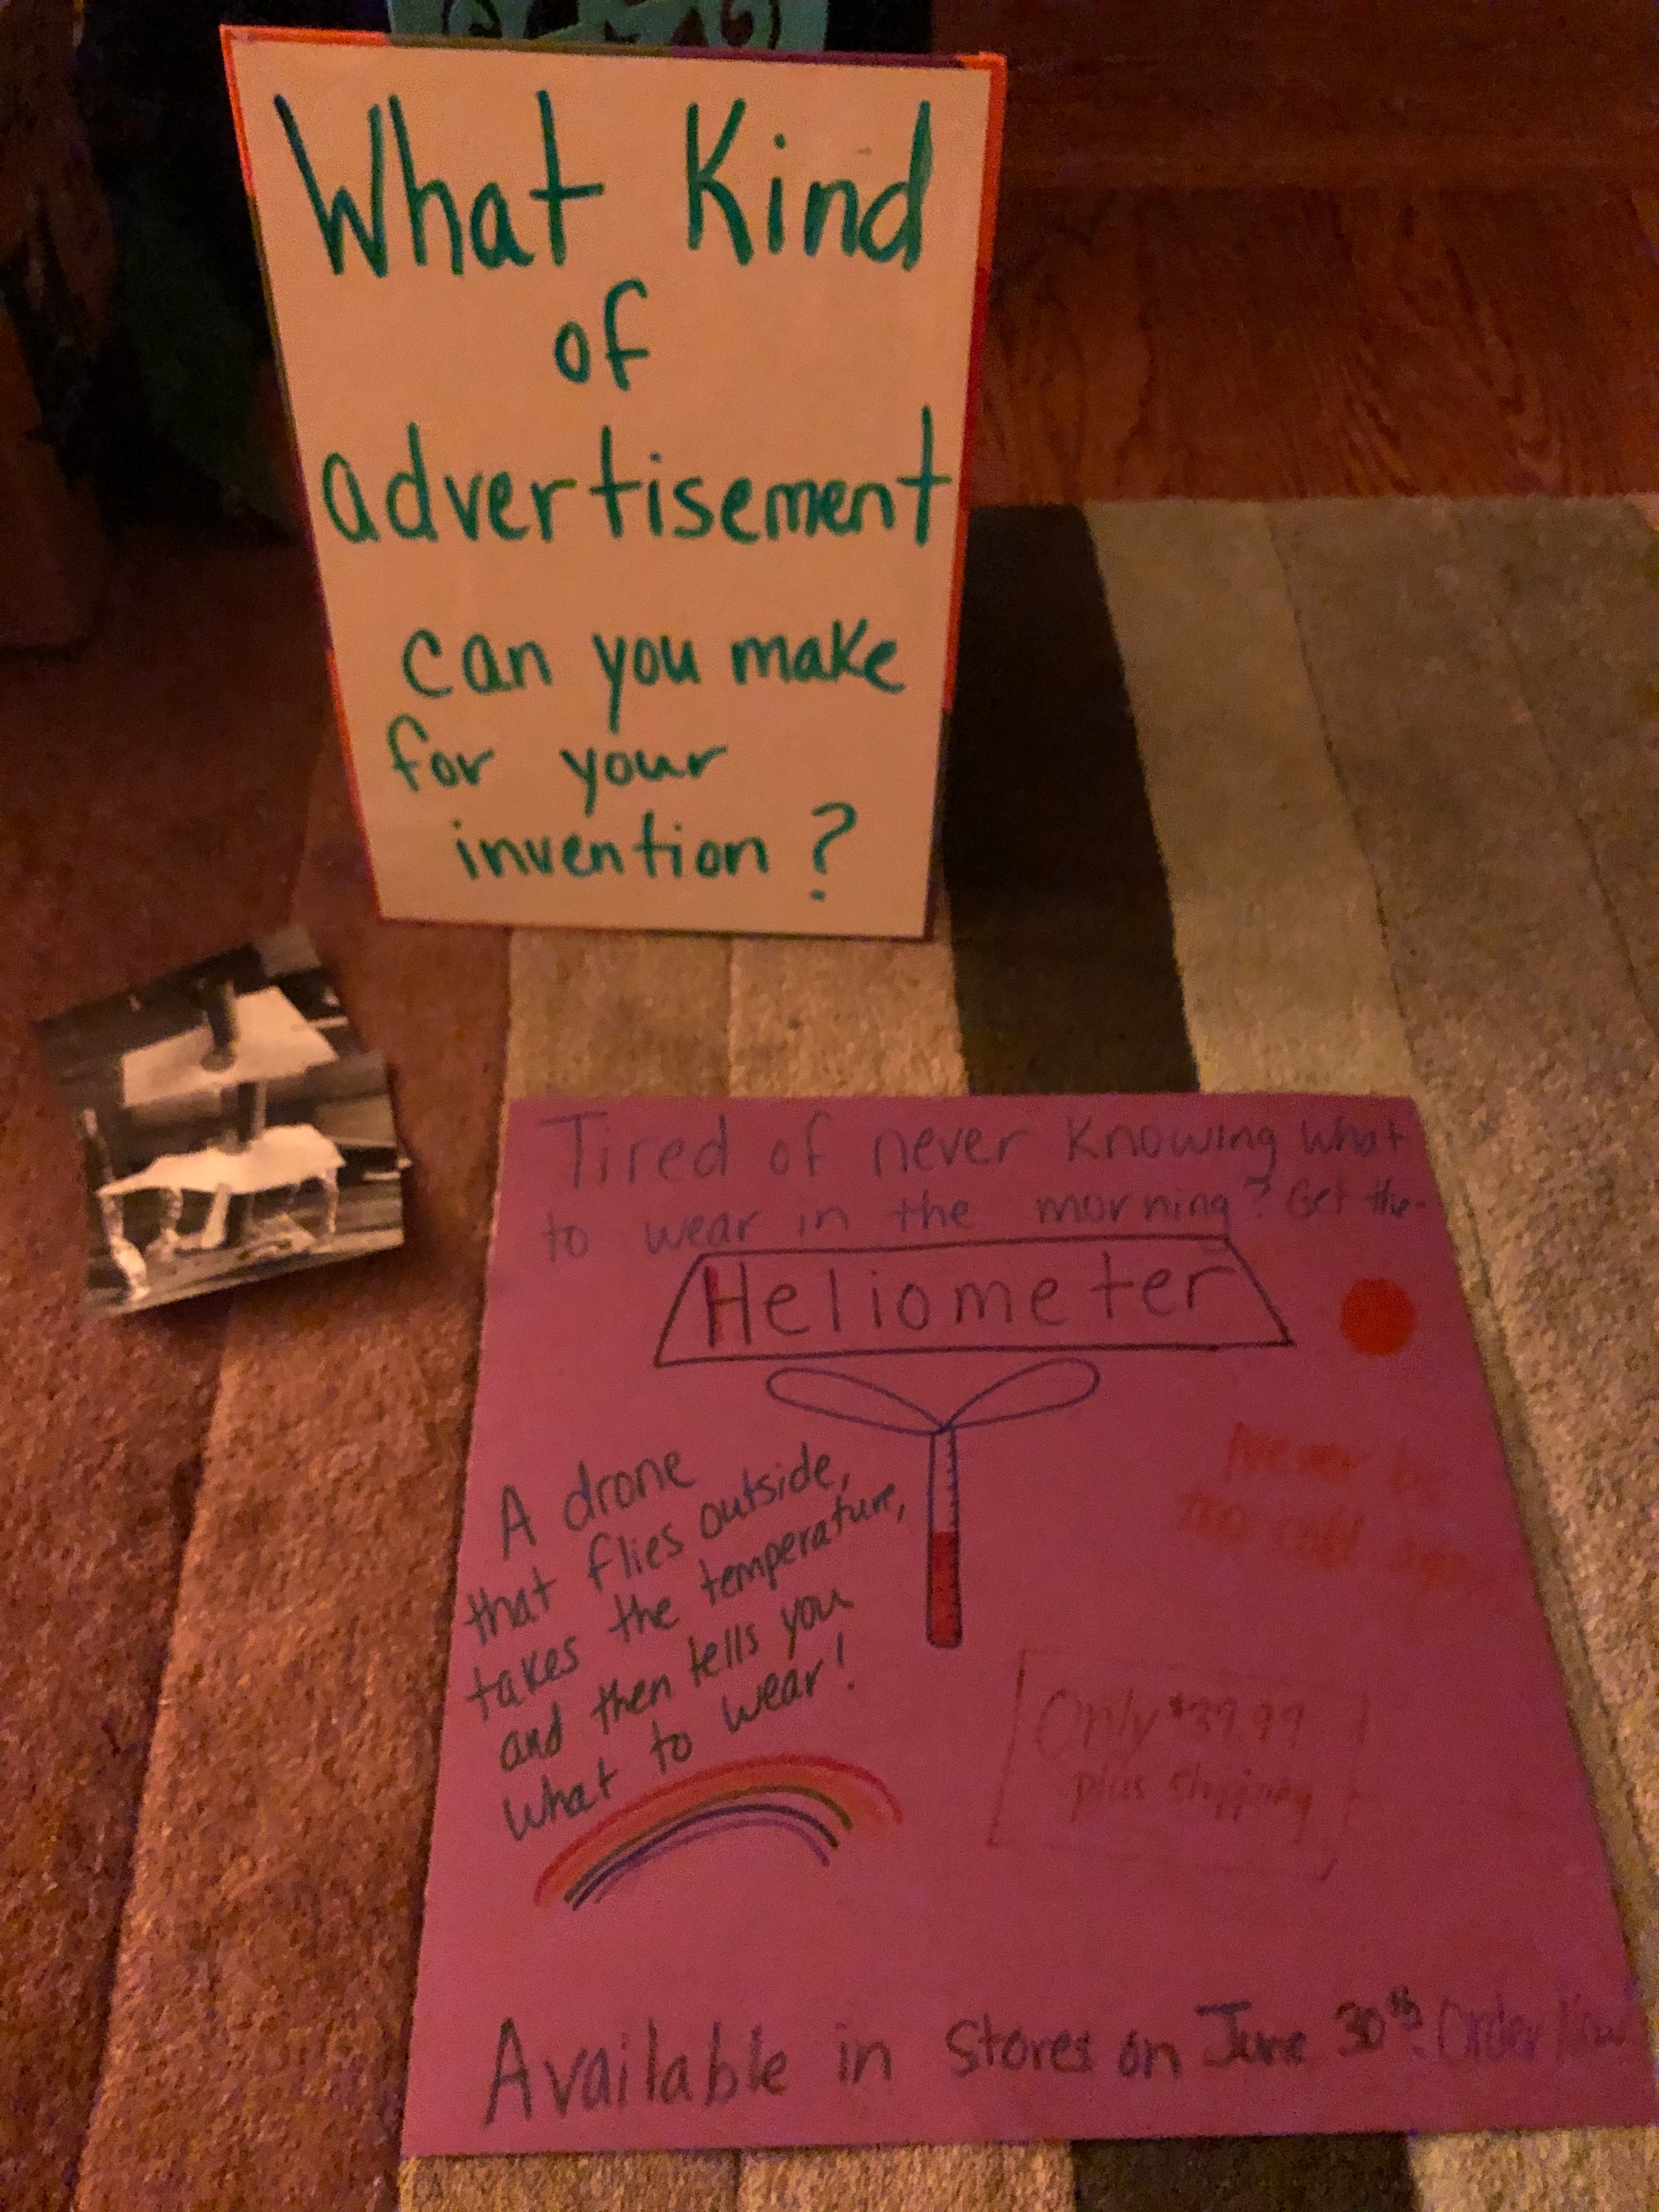 What Kind
of
advertisement
can you make
for your
invention?
Tired of never knowing what
to wear in the morning? Get the
Heliometer
A drone
that flies outside,
takes the temperature,
and then tells you
what to wear!
Never be
too cold
Only $39.99
plus shipping
Available in stores on June 30th. Order Now